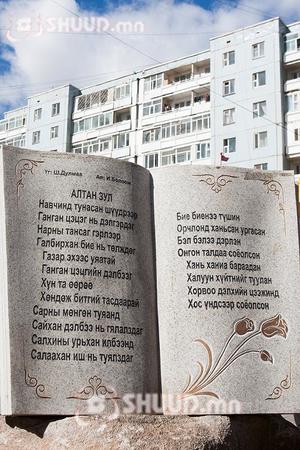 SHUUD.mn
Үг: Ш.Дулмаа Ая: И.Болоон
АЛТАН ЗУЛ
Навчинд тунасан шүүдрээр
Ганган цэцэг нь дэлгэрдэг
Нарны тансаг гэрлээр
Галбирхан бие нь төлждөг
Газар эхээс уяатай
Ганган цэцгийн дэлбээг
Хүн та өөрөө
Хөндөж битгий тасдаарай
Сарны мөнгөн туяанд
Сайхан дэлбээ нь гялалздаг
Салхины урьхан илбээнд
Салаахан иш нь туялздаг
Бие биенээ түшин
Орчлонд ханьсан ургасан
Бэл бэлээ дэрлэн
Онгон талдаа соёолсон
Хань ханиа бараадан
Халуун хүйтнийг туулан
Хорвоо дэлхийн цээжинд
Хос үндсээр соёолсон
SHUUD.mn
SHUUD.mn